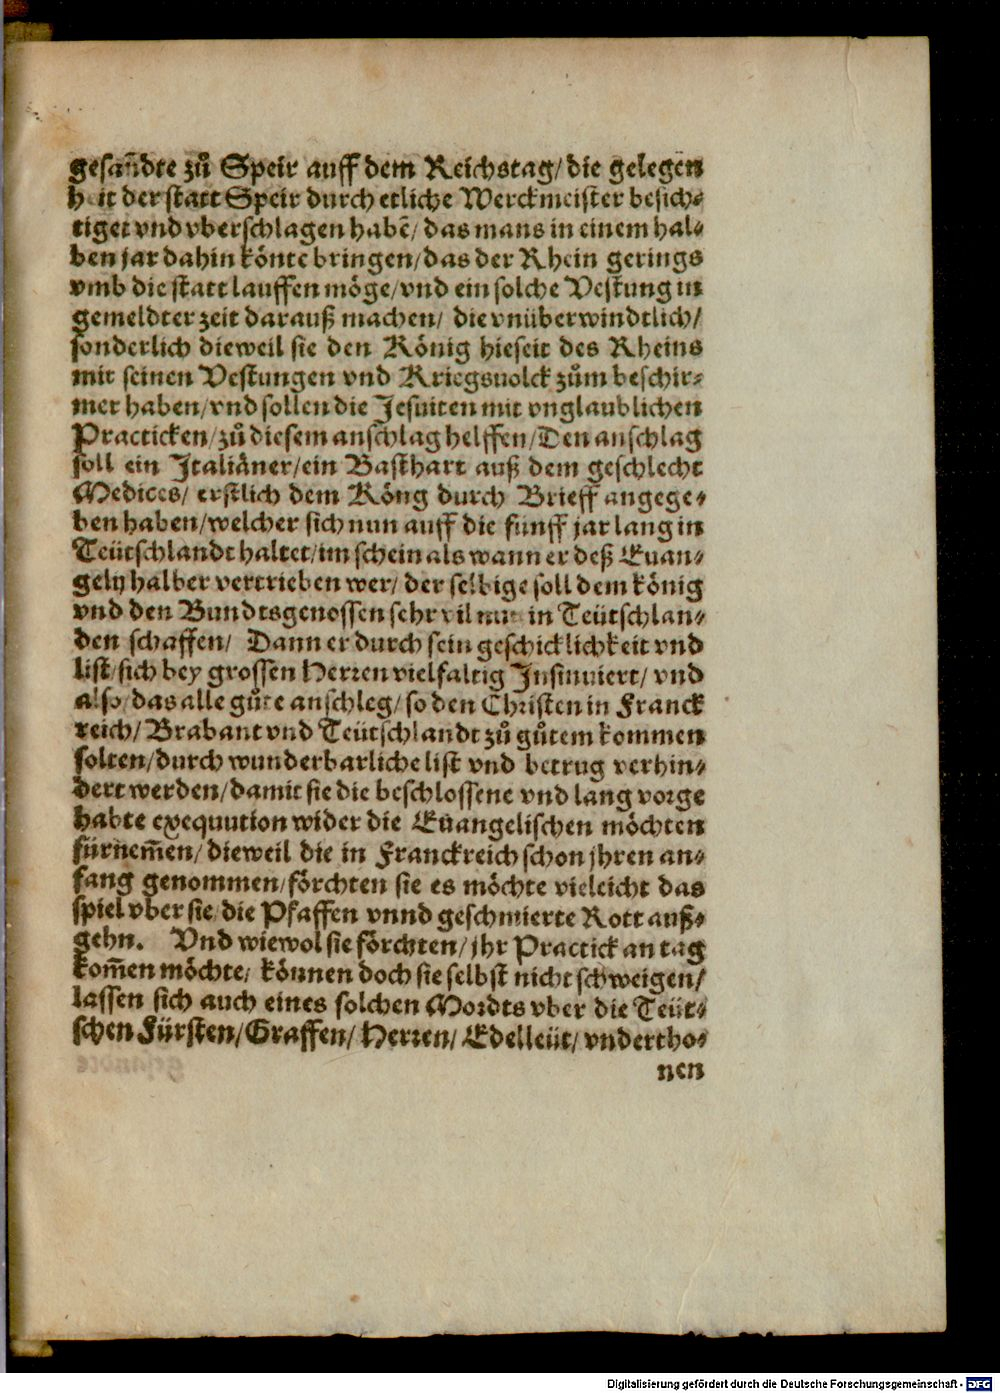 gesañdte zů Speir auff dem Reichstag/ die gelegen
heit der statt Speir durch etliche Werckmeister besich⸗
tiget vnd vberschlagen habē/ das mans in einem hal⸗
ben jar dahin könte bringen/ das der Rhein gerings
vmb die statt lauffen möge/ vnd ein solche Vestung in
gemeldter zeit darauß machen/ die vnüberwindtlich/
sonderlich dieweil sie den König hieseit des Rheins
mit seinen Vestungen vnd Kriegsuolck zům beschir⸗
mer haben/ vnd sollen die Jesuiten mit vnglaublichen
Practicken/ zů diesem anschlag helffen/ Den anschlag
soll ein Italiäner/ ein Basthart auß dem geschlecht
Medices/ erstlich dem Köng durch Brieff angege⸗
ben haben/ welcher sich nun auff die funff jar lang in
Teütschlandt haltet/ im schein als wann er deß Euan⸗
gelij halber vertrieben wer/ der selbige soll dem könig
vnd den Bundtsgenossen sehr vil nutz in Teütschlan⸗
den schaffen/ Dann er durch sein geschicklichkeit vnd
list/ sich bey grossen Herren vielfaltig Insinuiert/ vnd
also/ das alle gůte anschleg/ so den Christen in Franck
reich/ Brabant vnd Teütschlandt zů gůtem kommen
solten/ durch wunderbarliche list vnd betrug verhin⸗
dert werden/ damit sie die beschlossene vnd lang vorge
habte exequution wider die Euangelischen möchten
fürnem̃en/ dieweil die in Franckreich schon jhren an⸗
fang genommen/ förchten sie es möchte vieleicht das
spiel vber sie/ die Pfaffen vnnd geschmierte Rott auß⸗
gehn. Vnd wiewol sie förchten/ jhr Practick an tag
kom̃en möchte/ können doch sie selbst nicht schweigen/
lassen sich auch eines solchen Mordts vber die Teüt⸗
schen Fürsten/ Graffen/ Herren/ Edelleüt/ vndertho⸗
nen
Digitalisierung gefördert durch die Deutsche Forschungsgemeinschaft - DFG